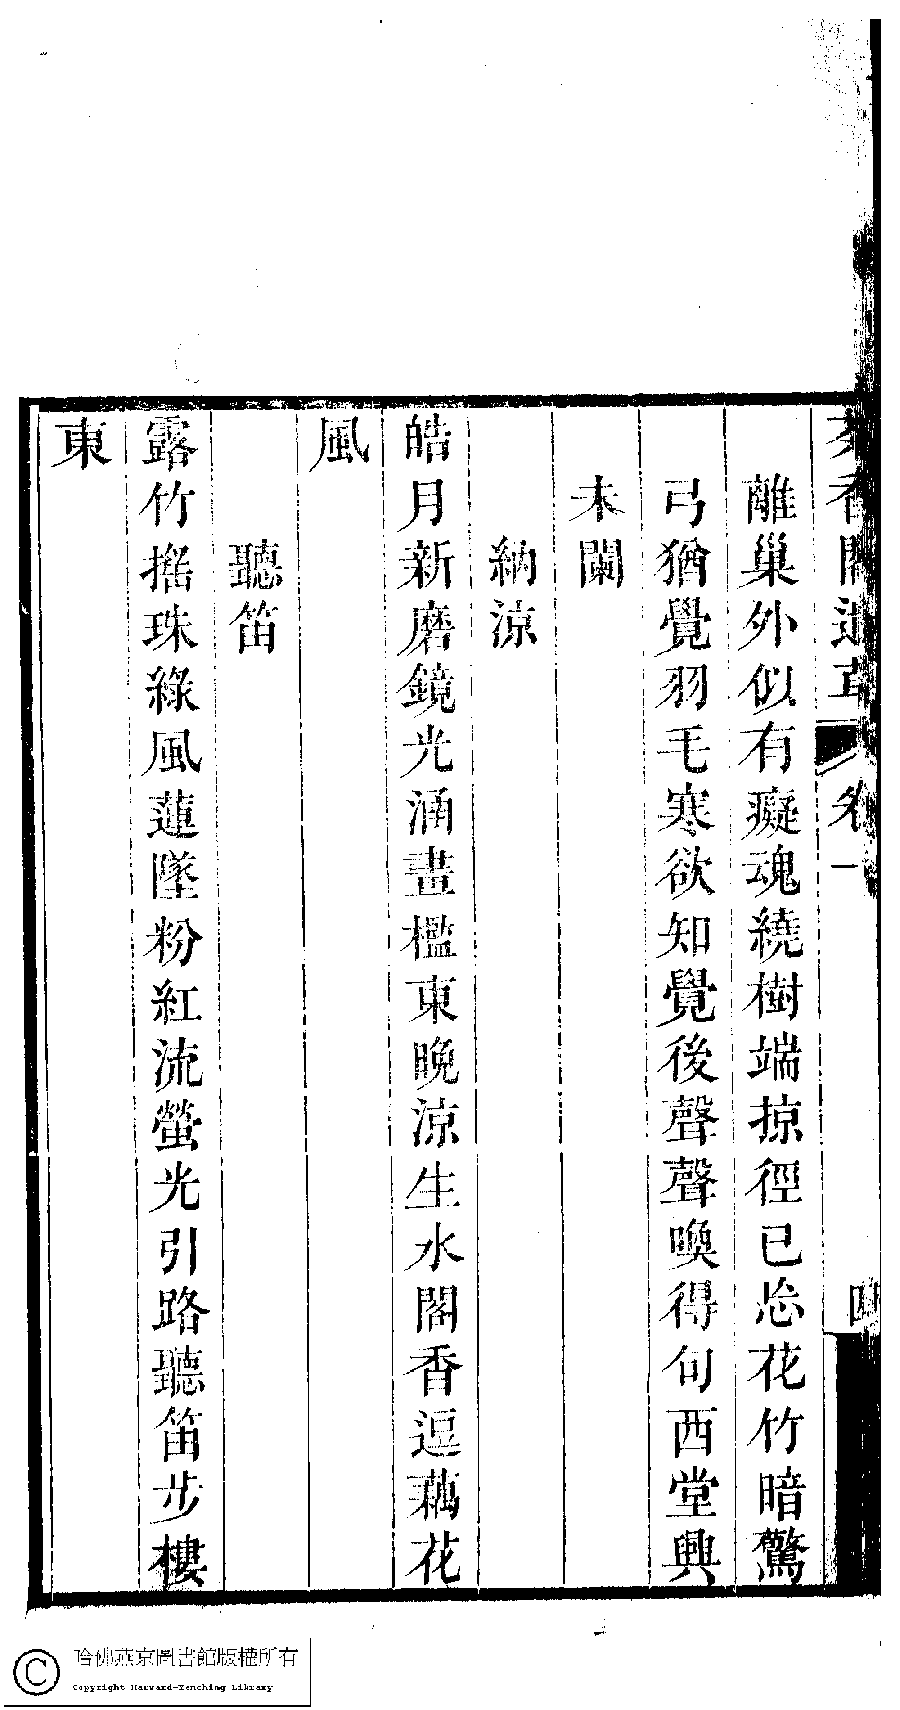 香閣遺草 卷一 四
離巢外似有癡魂繞樹端掠徑已忩花竹暗驚
弓猶覺羽毛寒欲知覺後聲聲喚得句西堂興
未闌
納涼
皓月新磨鏡光涵畫檻東晚涼生水閣香逗藕花
風
聽笛
露竹搖珠綠風蓮墜粉紅流螢光引路聽笛步樓
東
哈佛燕京圖書館版權所有
Copyright Harvard-Yenching Library